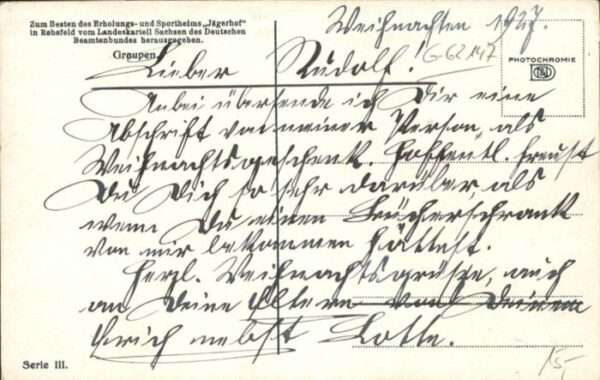 Zum Besten des Erholungs- und Sportheims „Jägerhof"
in Rehefeld vom Landeskartell Sachsen des Deutschen
Beamtenbundes herausgegeben.
Graupen.
Weihnachten 1927.
G-62147
PHOTOCHROMIE
Lieber Rudolf!
Anbei übersende ich Dir eine
Abschrift von meiner Person, als
Weihnachtsgeschenk. Hoffentl. freust
Du Dich so sehr darüber, als
wenn Du einen Bücherschrank
von mir bekommen hättest.
Herzl. Weihnachtsgrüße, auch
an Deine Eltern von Deinem
Erich nebst Lotte.
Serie III.
15,-